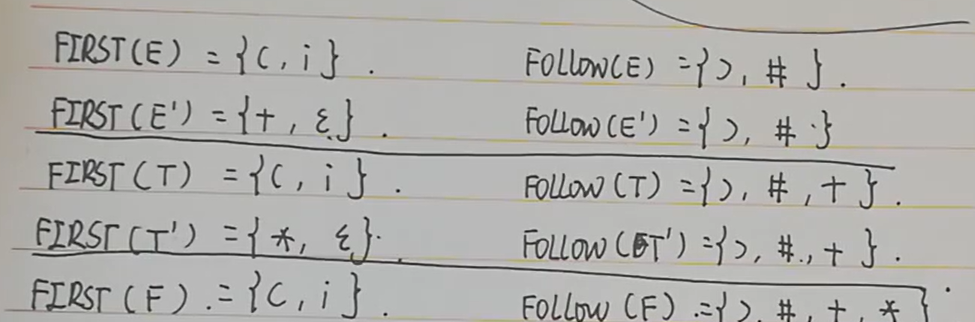 FIRST(E) = {(, i}. FOLLOW(E) = {), #}.
FIRST(E') = {+, ε}. FOLLOW(E') = {), #}
FIRST(T) = {(, i}. FOLLOW(T) = {), #, +}.
FIRST(T') = {*, ε}. FOLLOW(T') = {), #, +}.
FIRST(F) = {(, i}. FOLLOW(F) = {), #, +, *}